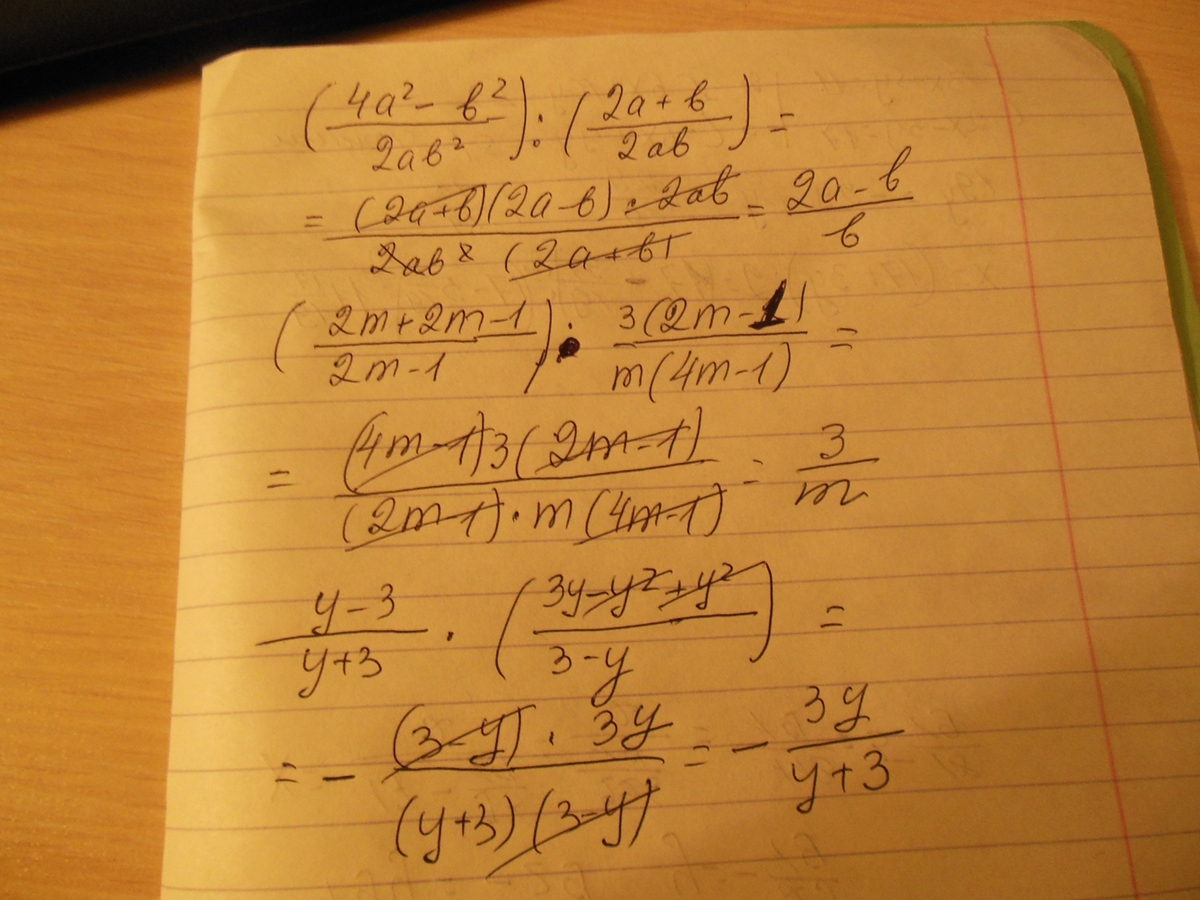 (4a² - b² / 2ab²) : (2a + b / 2ab) =
= (2a+b)(2a-b) · 2ab / 2ab² (2a+b) = 2a - b / b
(2m+2m-1 / 2m-1) · 3(2m-1) / m(4m-1) =
= (4m-1)3(2m-1) / (2m-1) · m(4m-1) = 3 / m
y-3 / y+3 · (3y-y²+y² / 3-y) =
= - (3-y) · 3y / (y+3)(3-y) = - 3y / y+3